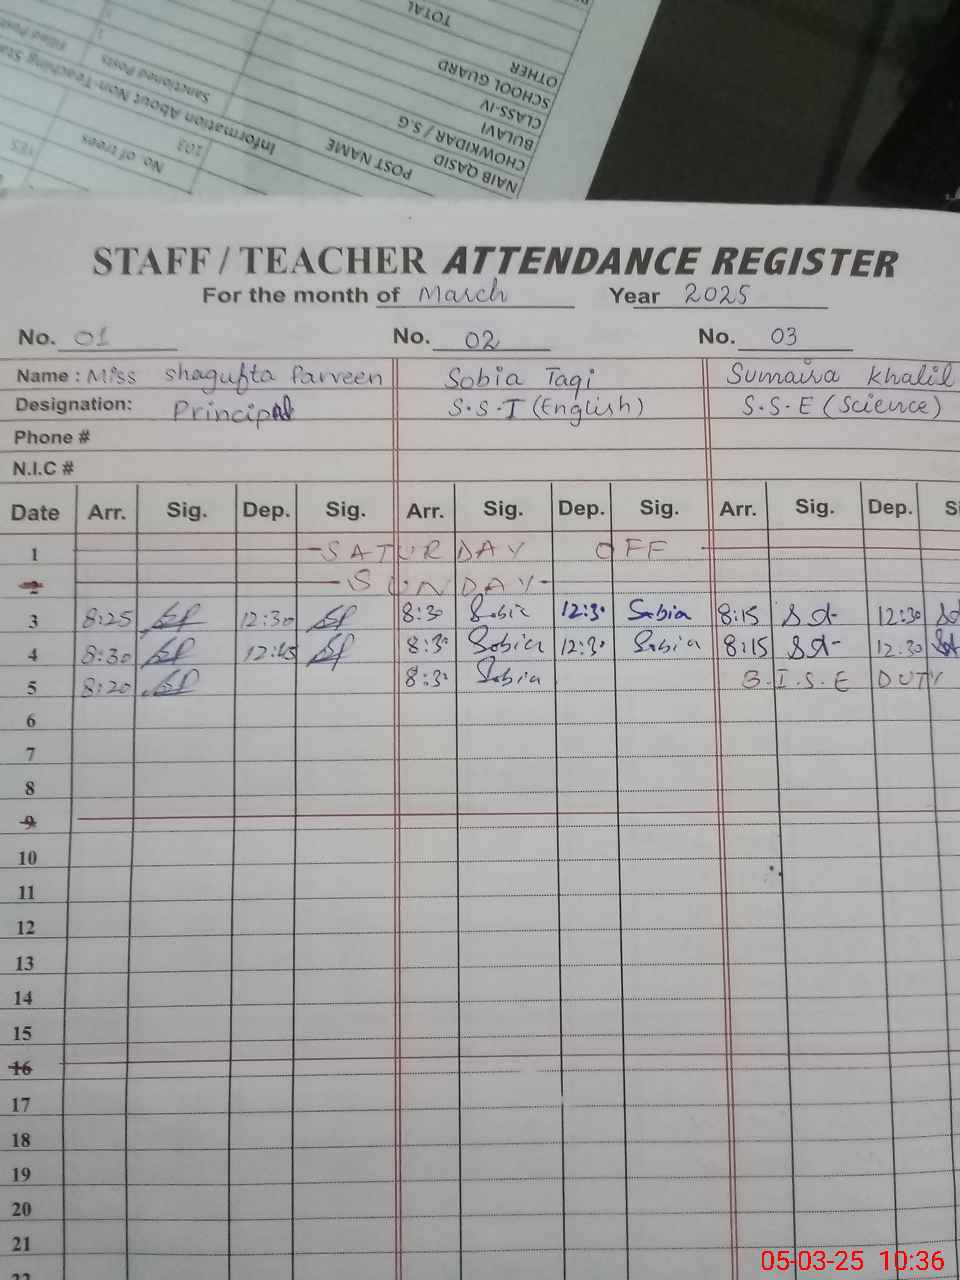 TOTAL
OTHER
SCHOOL GUARD
CLASS-IV
BULAVI
CHOWKIDAR / S.G
NAIB QASID
POST NAME
Sanctioned Posts
Filled Posts
Information About Non-Teaching
103
No. of trees
YES
STAFF / TEACHER ATTENDANCE REGISTER
For the month of March Year 2025
No. 01 No. 02 No. 03
Name : Miss Shagufta Parveen Sobia Taqi Sumaira Khalil
Designation: Principal S.S.T (English) S.S.E (Science)
Phone #
N.I.C #
Date Arr. Sig. Dep. Sig. Arr. Sig. Dep. Sig. Arr. Sig. Dep.
1 SATURDAY OFF
2 SUNDAY
3 8:25 12:30 8:30 Sobia 12:30 Sobia 8:15 12:30
4 8:30 12:45 8:30 Sobia 12:30 Sobia 8:15 12:30
5 8:20 8:30 Sobia B.I.S.E DUTY
6
7
8
9
10
11
12
13
14
15
16
17
18
19
20
21
22
05-03-25 10:36